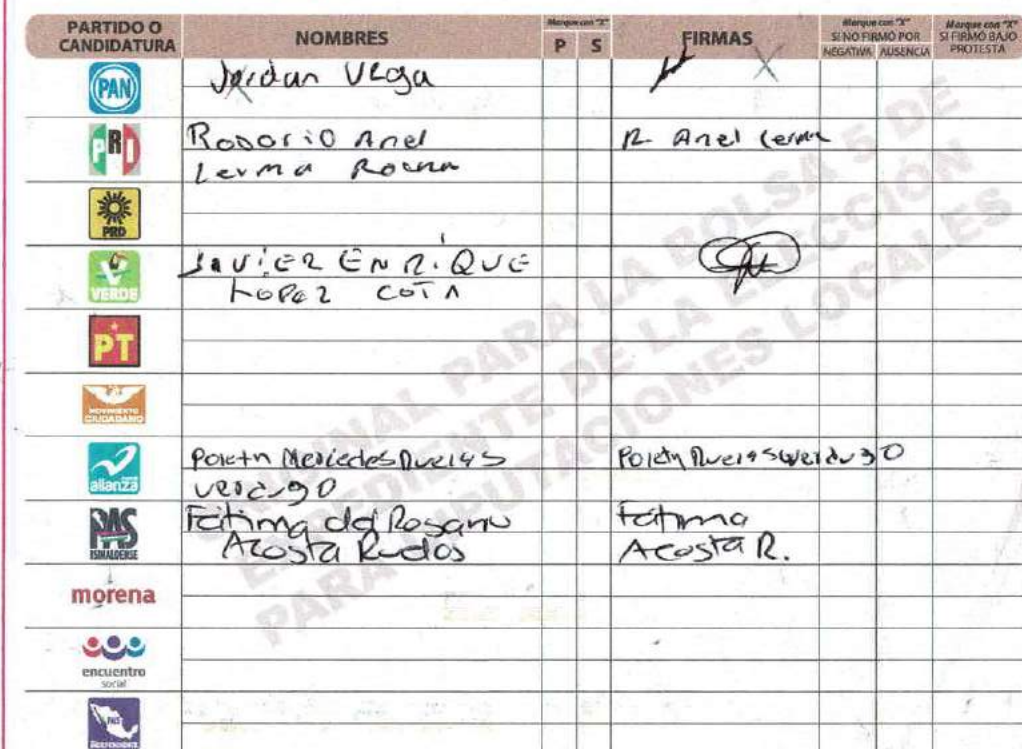 PARTIDO O CANDIDATURA
NOMBRES
Marque con "X"
P S
FIRMAS
Marque con "X"
SI NO FIRMÓ POR
NEGATIVA AUSENCIA
Marque con "X"
SI FIRMÓ BAJO
PROTESTA
PAN
Jordan Vega
PRI
Rosario Anel
Lerma
R. Anel Lerma
PRD
VERDE
JAVIER ENRIQUE
LOPEZ COTA
PT
MOVIMIENTO
CIUDADANO
alianza
Mercedes
verdugo
verdugo
PAS
SINALOENSE
Fatima del Rosario
Acosta
Fatima
Acosta R.
morena
encuentro
social
PAIS
INDEPENDIENTE
PARA LA BOLSA 5 DE
EXPEDIENTE DE LA ELECCIÓN
PARA DIPUTACIONES LOCALES